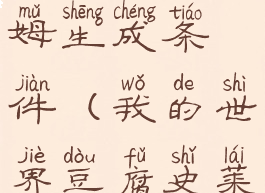 mǔ shēng chéng tiáo
姆生成条
jiàn wǒ de shì
件（我的世
jiè dòu fǔ shǐ lái
界豆腐史莱